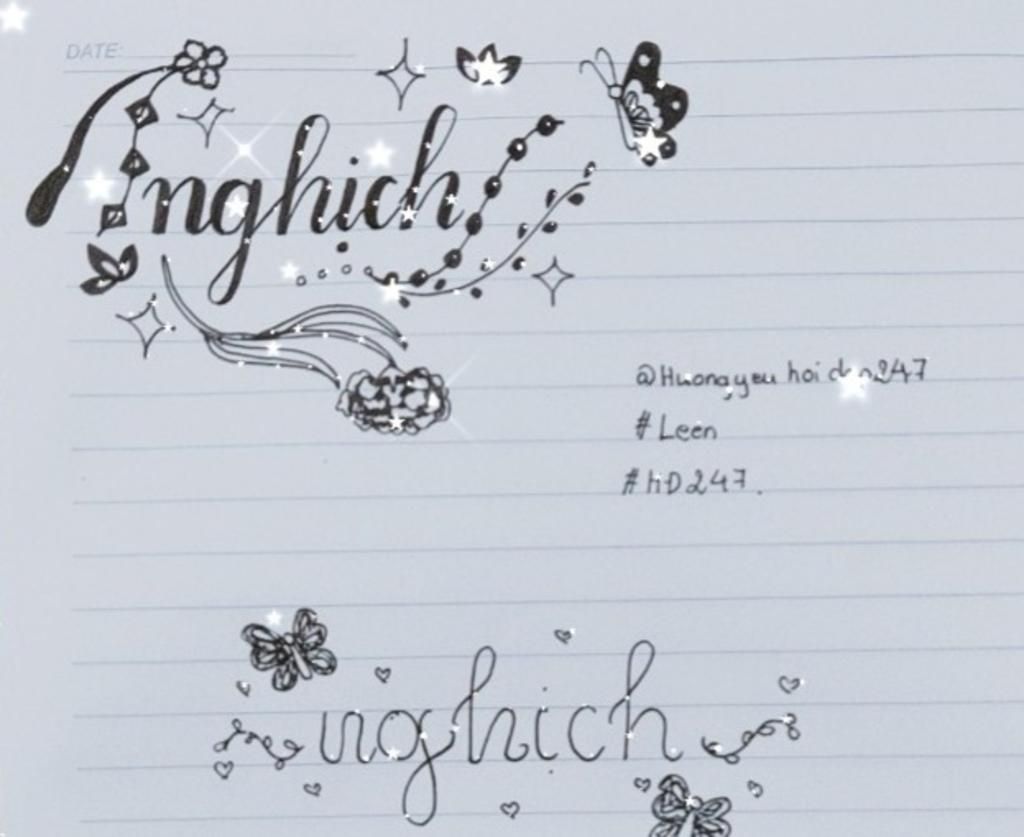 DATE:
nghịch
@Huongyeu hoi
#Leen
#hD247.
nghịch